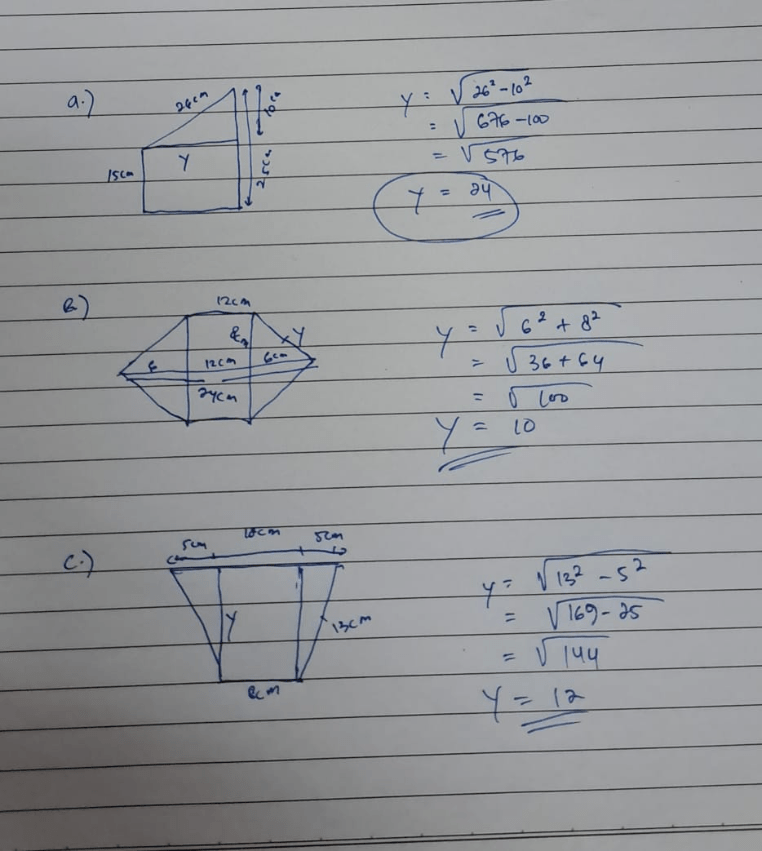 a.)
26cm
10cm
25cm
15cm
Y
Y = √26² - 10²
= √676 - 100
= √576
Y = 24
B)
12cm
Y
6
12cm
6cm
24cm
Y = √6² + 8²
= √36 + 64
= √100
Y = 10
C.)
5cm
5cm
Y
13cm
8cm
Y = √13² - 5²
= √169 - 25
= √144
Y = 12